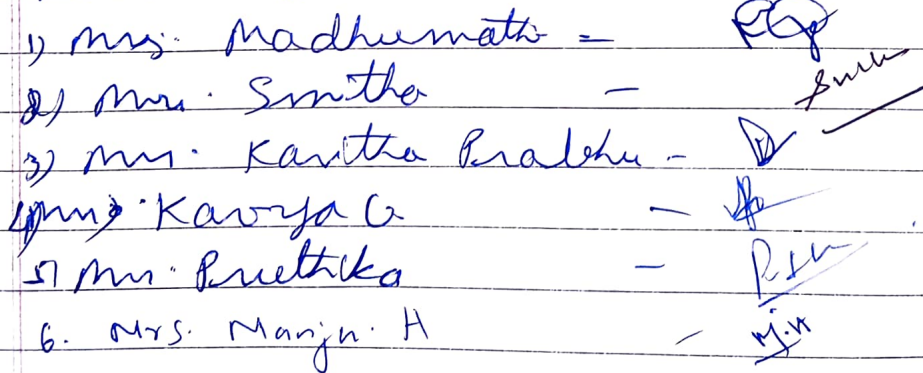 1) Mrs. Madhumathi =
2) Mrs. Smitha -
3) Mrs. Kavitha Prabhu -
4) Mrs. Kavya G -
5) Mrs. Preethika -
6. Mrs. Manju. H - M.H